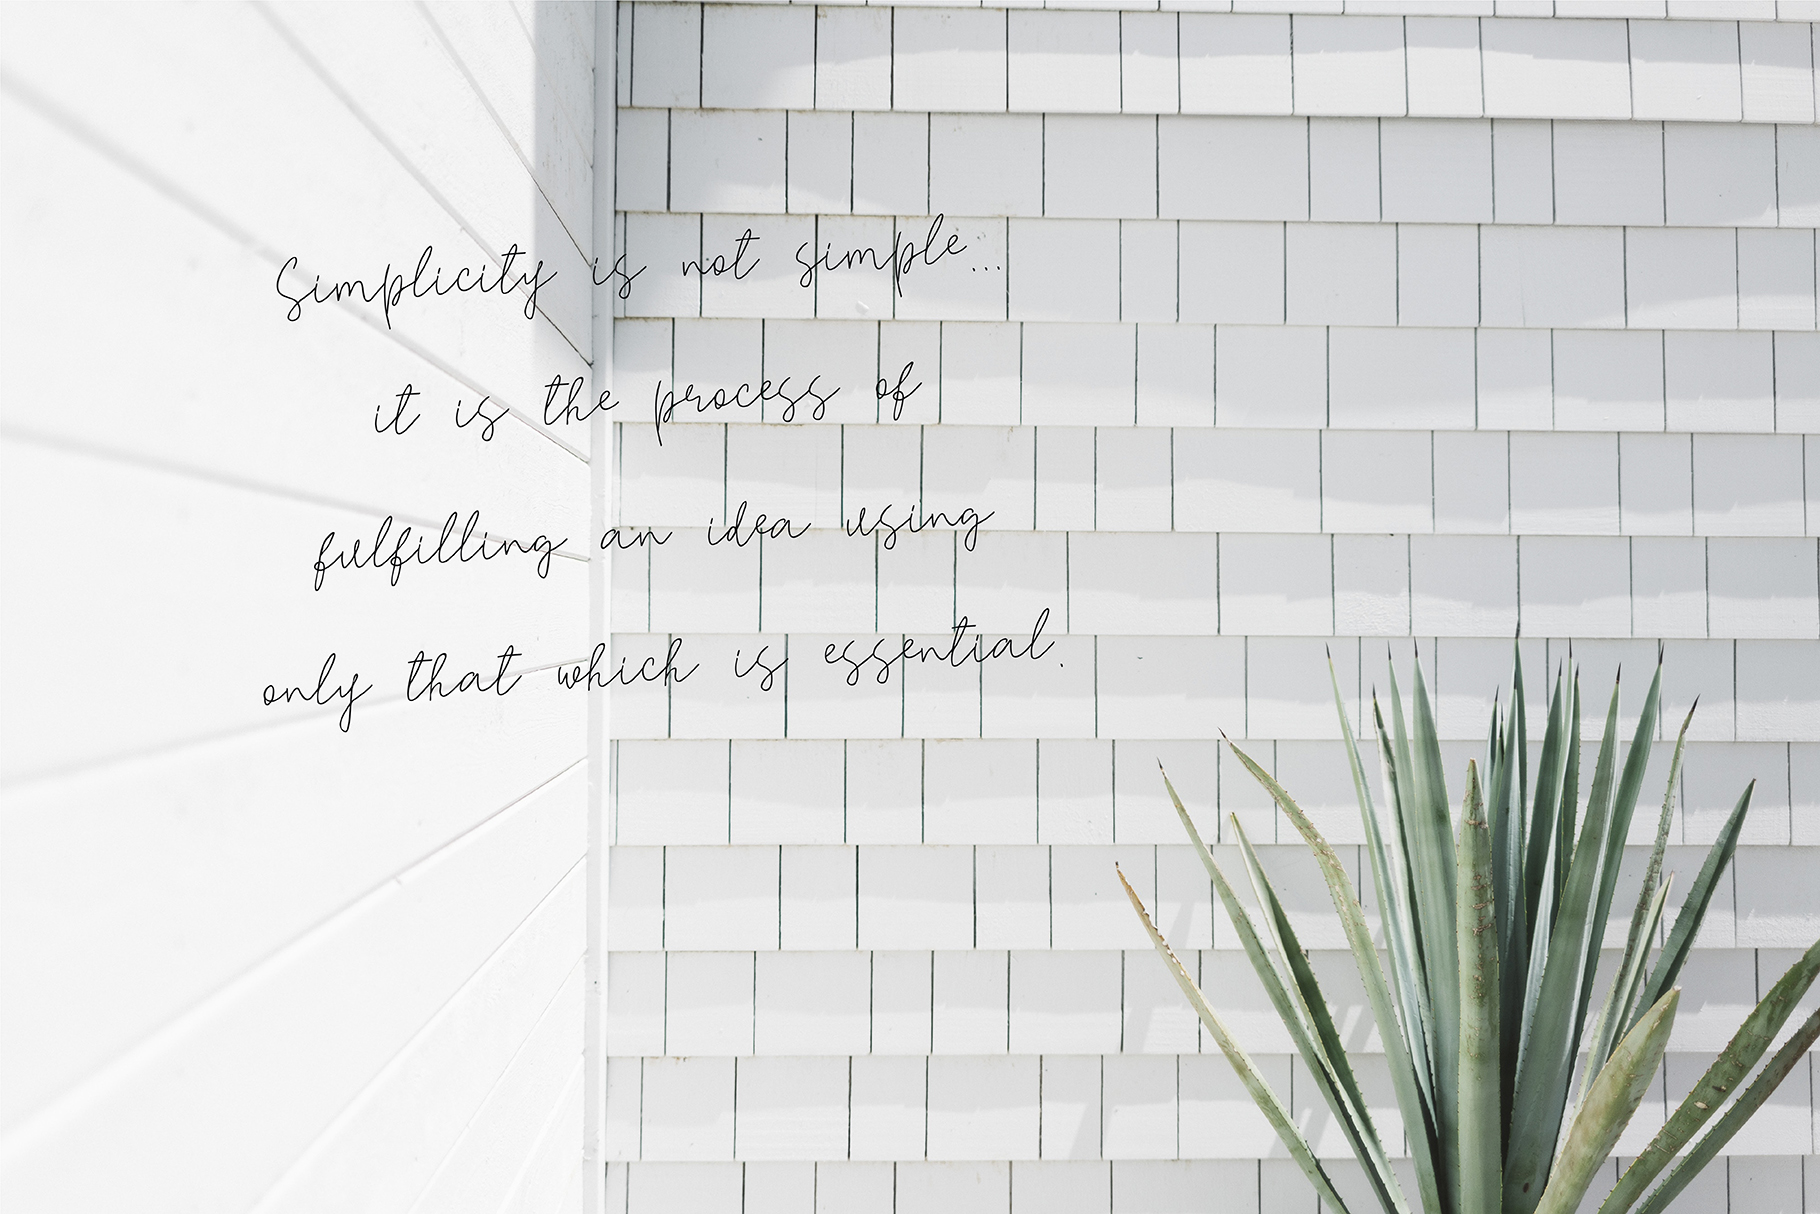 Simplicity is not simple...
it is the process of
fulfilling an idea using
only that which is essential.